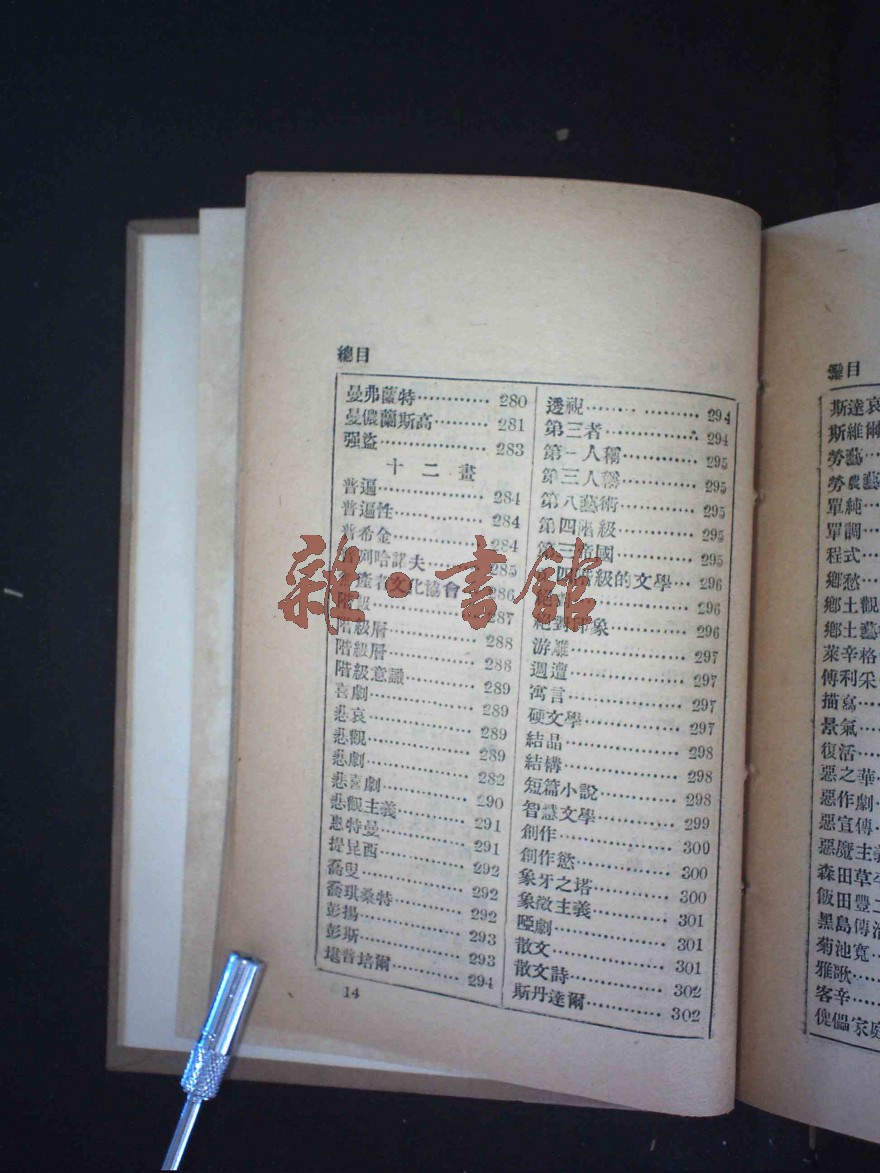 總目
曼弗薩特………… 280
曼儂蘭斯高……… 281
强盜……………… 283
十二畫
普遍……………… 284
普遍性…………… 284
普希金…………… 284
普列哈諾夫……… 285
無產者文化協會 286
階級……………… 287
階級層…………… 288
階級層…………… 288
階級意識………… 289
喜劇……………… 289
悲哀……………… 289
悲觀……………… 289
悲劇……………… 282
悲喜劇…………… 290
悲觀主義………… 291
惠特曼…………… 291
提昆西…………… 292
喬叟……………… 292
喬琪桑特………… 292
彭揚……………… 293
彭斯……………… 293
堪普培爾………… 294
透視……………… 294
第三者…………… 294
第一人稱………… 295
第三人稱………… 295
第八藝術………… 295
第四階級………… 295
第三帝國………… 295
第四階級的文學… 296
296
絕對印象………… 296
游離……………… 297
週遭……………… 297
寓言……………… 297
硬文學…………… 297
結晶……………… 298
結構……………… 298
短篇小說………… 298
智慧文學………… 299
創作……………… 300
創作慾…………… 300
象牙之塔………… 300
象徵主義………… 301
啞劇……………… 301
散文……………… 301
散文詩…………… 302
斯丹達爾………… 302
14
總目
斯達哀
斯維爾
勞藝…
勞農藝
單純…
單調…
程式…
鄉愁…
鄉土觀
鄉土藝
萊辛格
傅利采
描寫…
景氣…
復活…
惡之華
惡作劇
惡宣傳
惡魔主義
森田草平
飯田豐二
黑島傳治
菊池寬…
雅歌…
客辛…
傀儡家庭
雜·書館